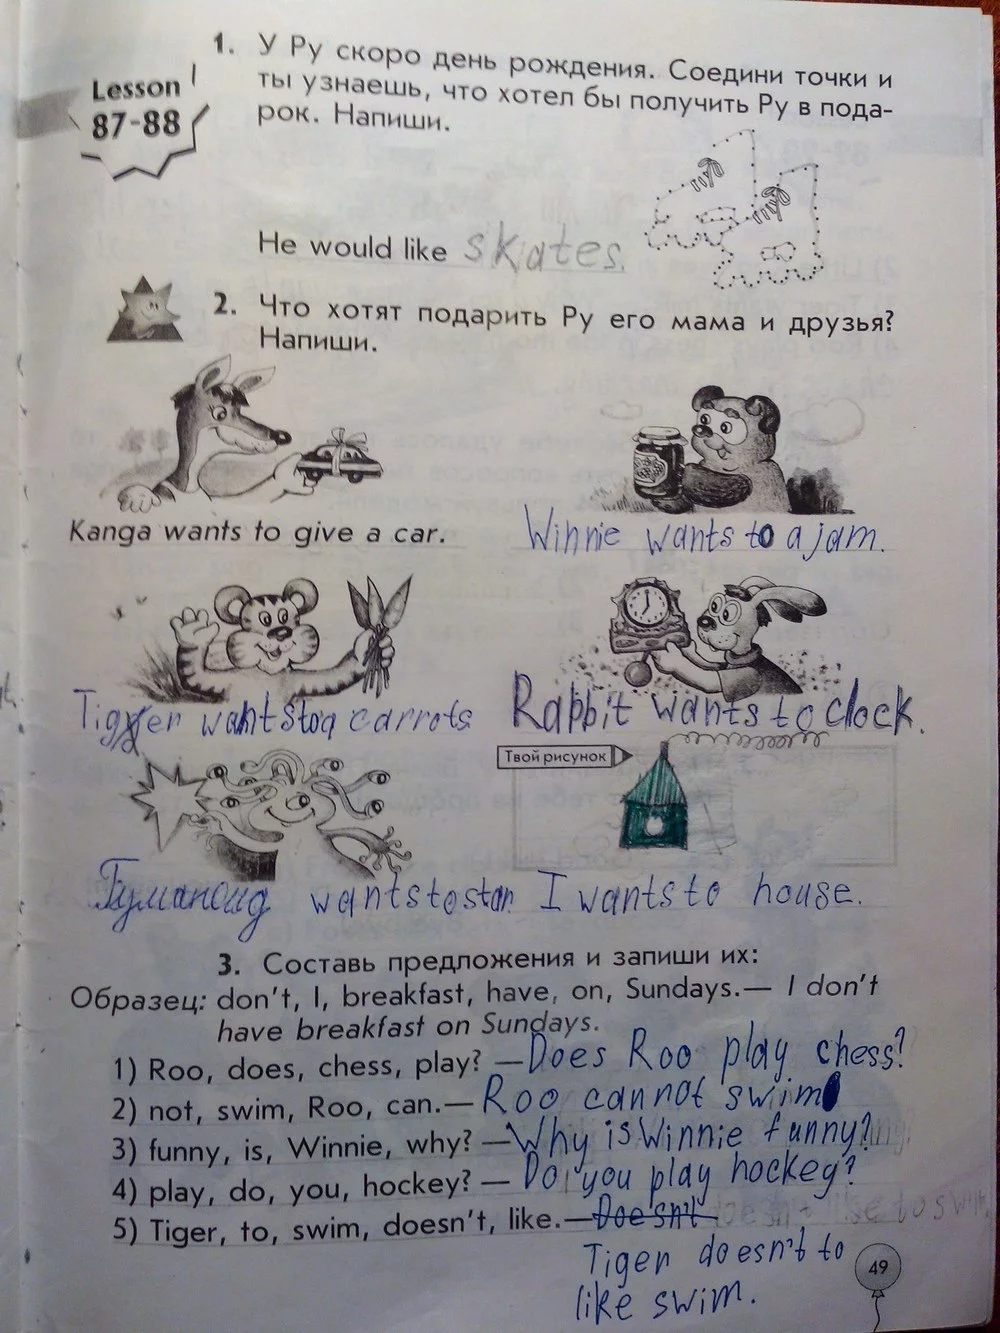 Lesson
87-88
1. У Ру скоро день рождения. Соедини точки и
ты узнаешь, что хотел бы получить Ру в пода-
рок. Напиши.
He would like skates.
2. Что хотят подарить Ру его мама и друзья?
Напиши.
Kanga wants to give a car.
Winnie wants to a jam.
Tigger wants to a carrots
Rabbit wants to clock.
Твой рисунок
Гуманоид wants to star.
I wants to house.
3. Составь предложения и запиши их:
Образец: don't, I, breakfast, have, on, Sundays.— I don't
have breakfast on Sundays.
1) Roo, does, chess, play? — Does Roo play chess?
2) not, swim, Roo, can.— Roo cannot swim
3) funny, is, Winnie, why? — Why is Winnie funny?
4) play, do, you, hockey? — Do you play hockey?
5) Tiger, to, swim, doesn't, like.— Doesn't
Tiger doesn't to
like swim.
49